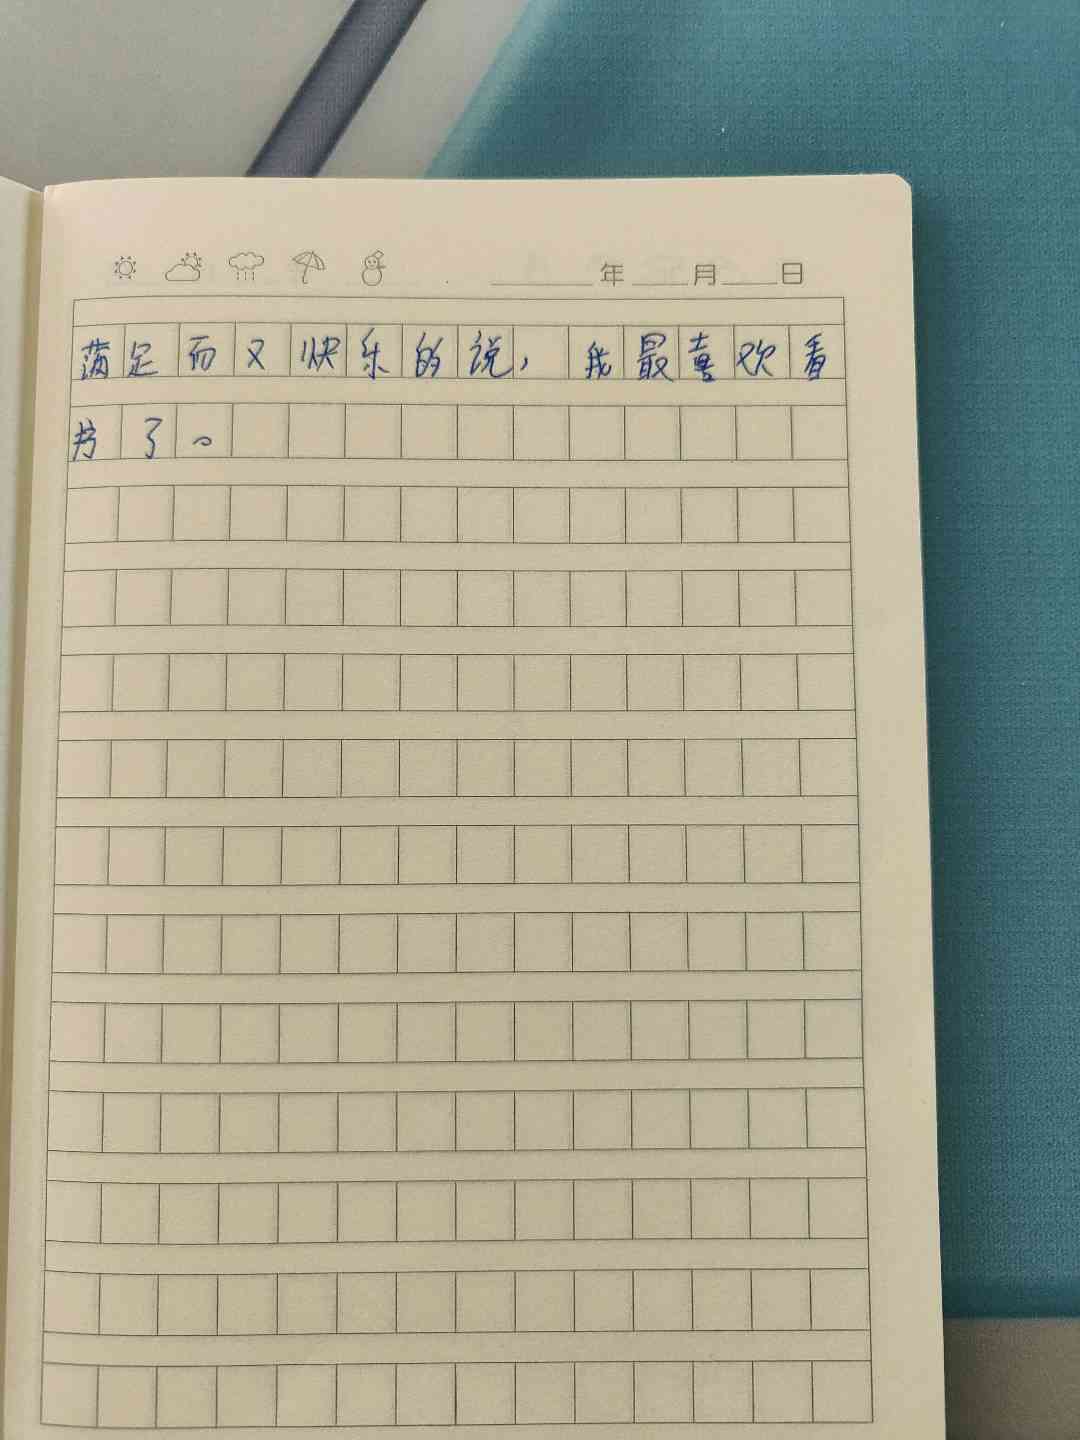 年 月 日
满足而又快乐的说，我最喜欢看
书了。